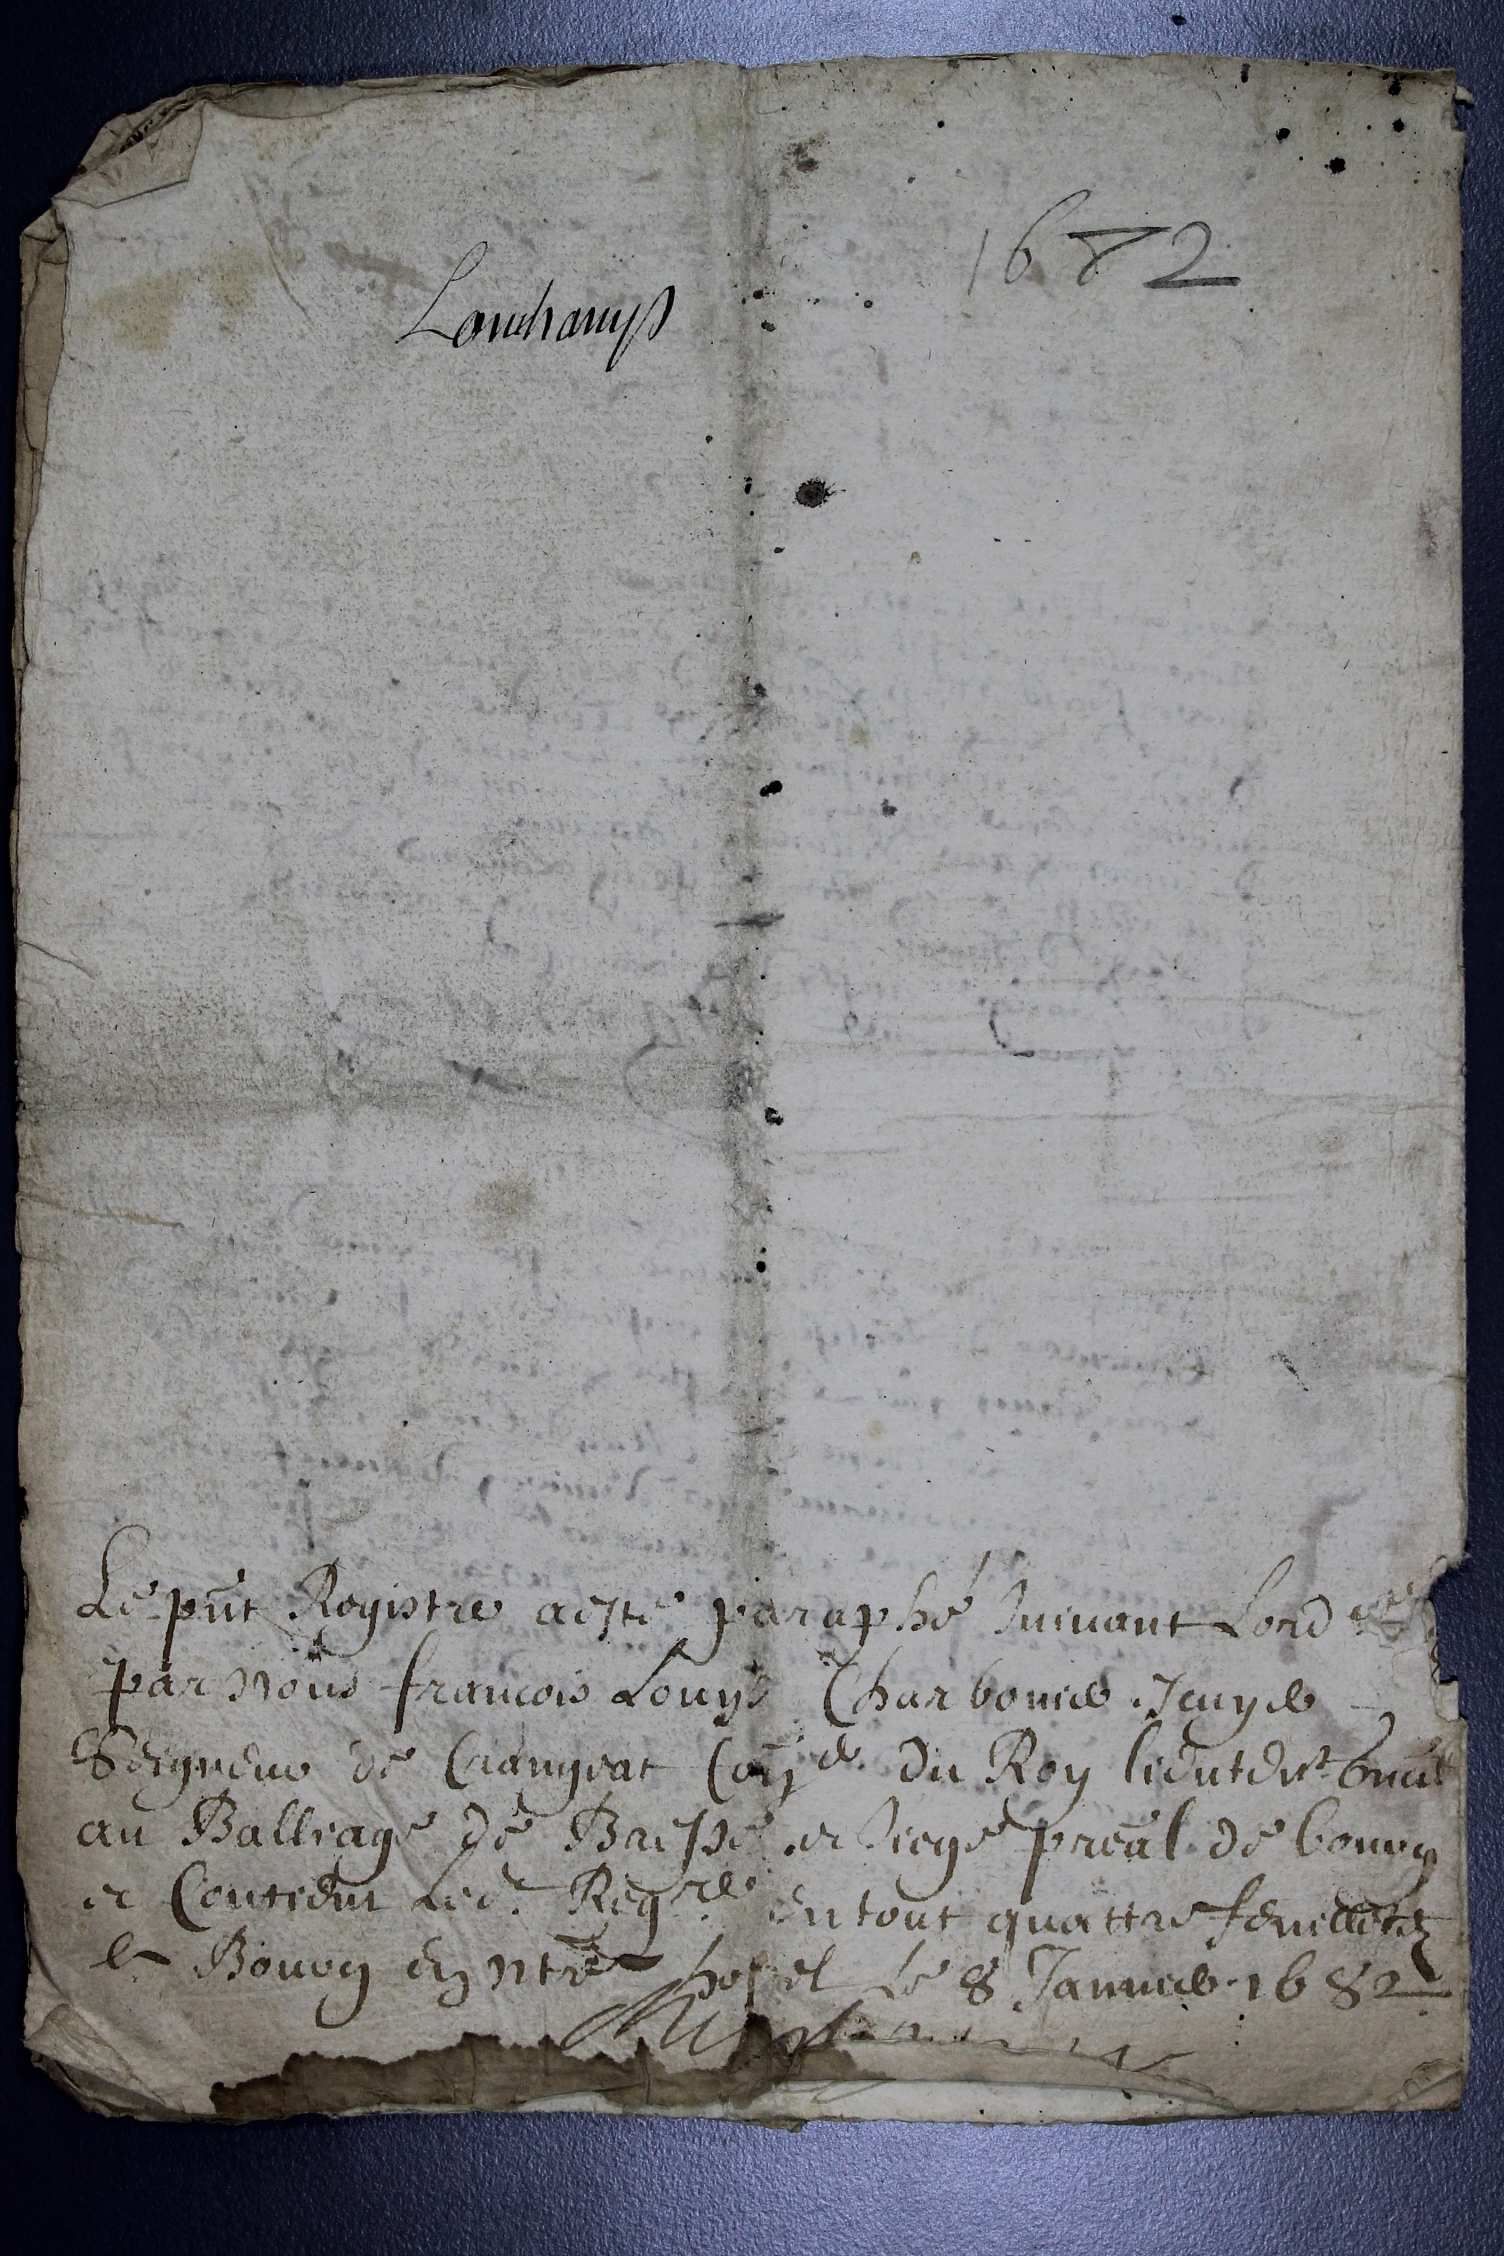 1682
Lonchamps
Le pnt Registre a esté paraphé suivant Lord
par nous françois Louys Charbonnie Icuye
Seigneur de Crangeat Coner du Roy lieutent gnal
au Balliage de Bresse et siege preal de bourg
et Contient Led. Regre en tout quattre feuilletz
a Bourg en ntre hostel Le 8 Januie 1682